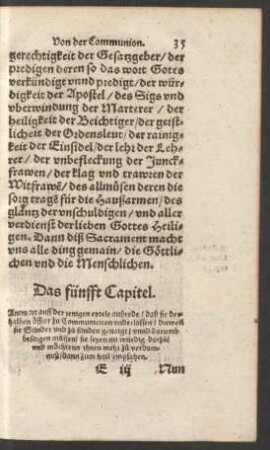 Von der Communion. 35
gerechtigkeit der Gesatzgeber/ der
predigen deren so das wort Gotes
verkündigt vnnd predigt/ der wür-
digkeit der Apostel/ des Sigs vnd
vberwindung der Marterer/ der
heiligkeit der Beichtiger/ der geist-
licheit der Ordensleut/ der rainig-
keit der Einsidel/ der lehr der Leh-
rer/ der vnbefleckung der Junck-
frawen/ der klag vnd trawren der
Witfrawē/ des allmůsen deren die
sorg tragē für die Haußarmen/ des
gläntz der vnschuldigen/ vnd aller
verdienst der lieben Gottes Heili-
gen. Dann diß Sacrament macht
vns alle ding gemain/ die Göttli-
chen vnd die Menschlichen.
Das fünfft Capitel.
auff der jenigen eytele außrede/ daß sie de-
sthalben öffter zu Communicieren vnderlassen/ dieweil
sie Sünder vnd zů sünden genaigt/ vnnd darumb
besorgen müssen/ sie seyen nit wirdig darzů/
vnd möchtens jhnen mehr zů verdam-
nuß/ dann zum heil empfahen.
E iij Nun